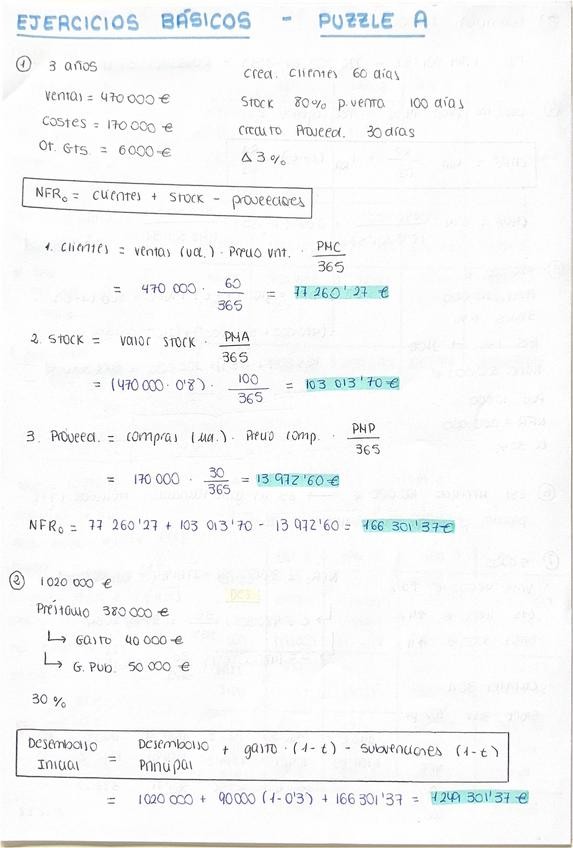 EJERCICIOS BÁSICOS - PUZZLE A
① 3 años
Ventas = 470 000 €
Costes = 170 000 €
Ot. Gts. = 6000 €
Cred. Clientes 60 días
Stock 80% p. venta 100 días
Crédito Proveed. 30 días
Δ 3 %
NFR₀ = Clientes + Stock - proveedores
1. Clientes = Ventas (ud.) · Precio Vnt. · PMC / 365
= 470 000 · 60 / 365 = 77 260'27 €
2. Stock = Valor stock · PMA / 365
= (470 000 · 0'8) · 100 / 365 = 103 013'70 €
3. Proveed. = compras (ud.) · Precio comp. · PMP / 365
= 170 000 · 30 / 365 = 13 972'60 €
NFR₀ = 77 260'27 + 103 013'70 - 13 972'60 = 166 301'37 €
② 1020 000 €
Préstamo 380 000 €
↳ Gasto 40 000 €
↳ G. Pub. 50 000 €
30 %
Desembolso Inicial = Desembolso Principal + gasto · (1-t) - subvenciones (1-t)
= 1020 000 + 90000 (1-0'3) + 166 301'37 = 1249 301'37 €